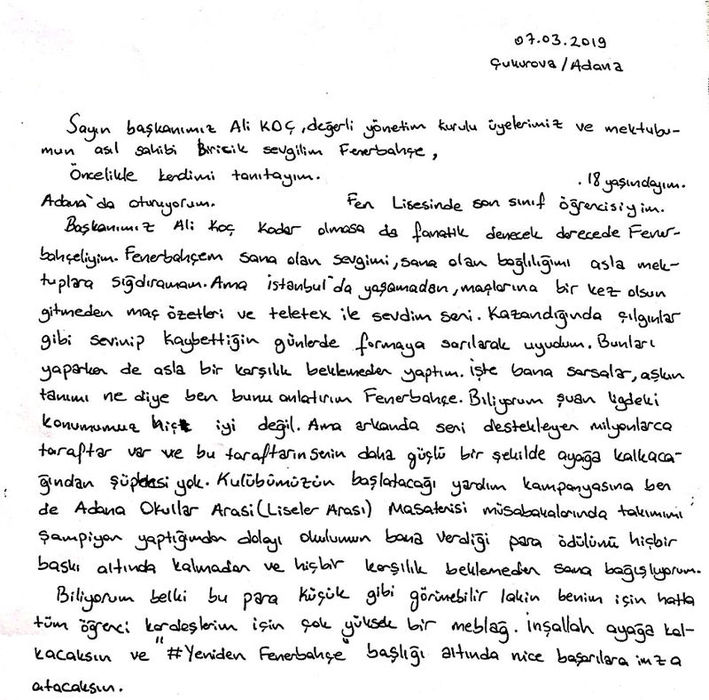 07.03.2019
Çukurova/Adana
Sayın başkanımız Ali KOÇ, değerli yönetim kurulu üyelerimiz ve mektubu-
mun asıl sahibi Biricik sevgilim Fenerbahçe,
Öncelikle kendimi tanıtayım. . 18 yaşındayım.
Adana'da oturuyorum. Fen Lisesinde son sınıf öğrencisiyim.
Başkanımız Ali Koç kadar olmasa da fanatik denecek derecede Fener-
bahçeliyim. Fenerbahçem sana olan sevgimi, sana olan bağlılığımı asla mek-
tuplara sığdıramam. Ama İstanbul'da yaşamadan, maçlarına bir kez olsun
gitmeden maç özetleri ve teletex ile sevdim seni. Kazandığında çılgınlar
gibi sevinip kaybettiğin günlerde formaya sarılarak uyudum. Bunları
yaparken de asla bir karşılık beklemeden yaptım. İşte bana sorsalar, aşkın
tanımı ne diye ben bunu anlatırım Fenerbahçe. Biliyorum şuan ligdeki
konumumuz hiç iyi değil. Ama arkanda seni destekleyen milyonlarca
taraftar var ve bu taraftarın senin daha güçlü bir şekilde ayağa kalkaca-
ğından şüphesi yok. Kulübümüzün başlatacağı yardım kampanyasına ben
de Adana Okullar Arası (Liseler Arası) Masatenisi müsabakalarında takımımı
şampiyon yaptığımdan dolayı okulumun bana verdiği para ödülünü hiçbir
baskı altında kalmadan ve hiçbir karşılık beklemeden sana bağışlıyorum.
Biliyorum belki bu para küçük gibi görünebilir lakin benim için hatta
tüm öğrenci kardeşlerim için çok yüksek bir meblağ. İnşallah ayağa kal-
kacaksın ve "#Yeniden Fenerbahçe" başlığı altında nice başarılara imza
atacaksın.